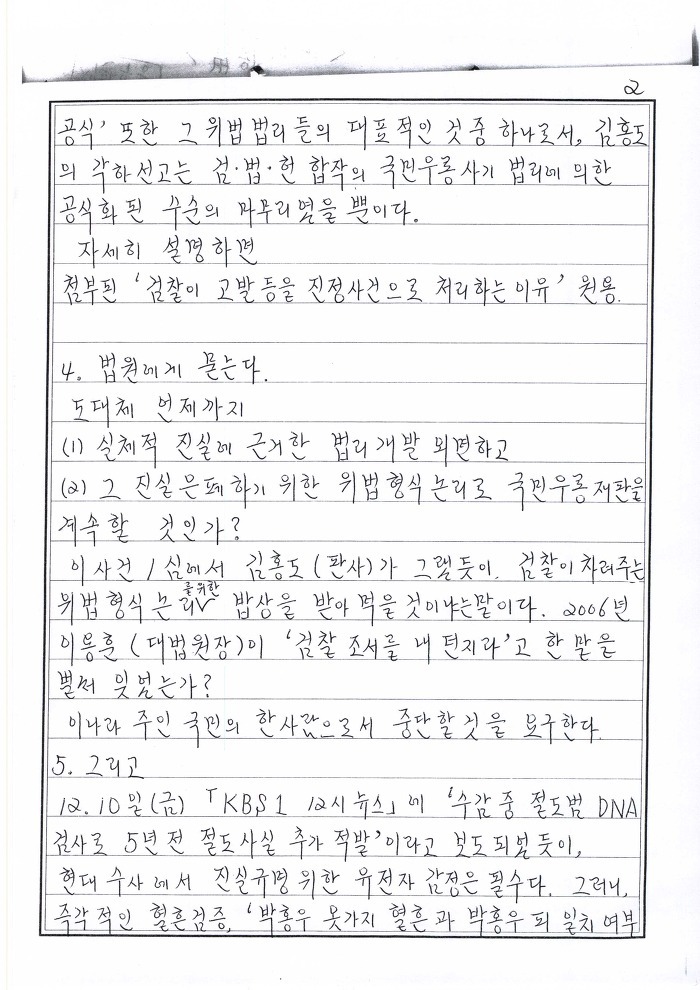 2
공식' 또한 그 위법법리들의 대표적인 것중 하나로서, 김홍도
의 각하선고는 검·법·헌 합작의 국민우롱사기 법리에 의한
공식화 된 수순의 마무리였을 뿐이다.
자세히 설명하면
첨부된 '검찰이 고발등을 진정사건으로 처리하는이유' 원용.
4. 법원에게 묻는다.
도대체 언제까지
(1) 실체적 진실에 근거한 법리개발 외면하고
(2) 그 진실은폐하기 위한 위법형식논리로 국민우롱재판을
계속할 것인가?
이사건 1심에서 김홍도(판사)가 그랬듯이. 검찰이 차려주는
위법형식논리를위한 밥상을 받아 먹을것이냐는말이다. 2006년
이용훈 (대법원장)이 '검찰 조서를 내 던지라'고 한 말을
벌써 잊었는가?
이나라 주인 국민의 한사람으로서 중단할것을 요구한다.
5. 그리고
12.10일(금) 「KBS1 12시뉴스」에 '수감중 절도범 DNA
검사로 5년전 절도사실 추가 적발'이라고 보도되었듯이,
현대 수사에서 진실규명 위한 유전자 감정은 필수다. 그러니,
즉각적인 혈흔검증, '박홍우 옷가지 혈흔과 박홍우 피 일치 여부